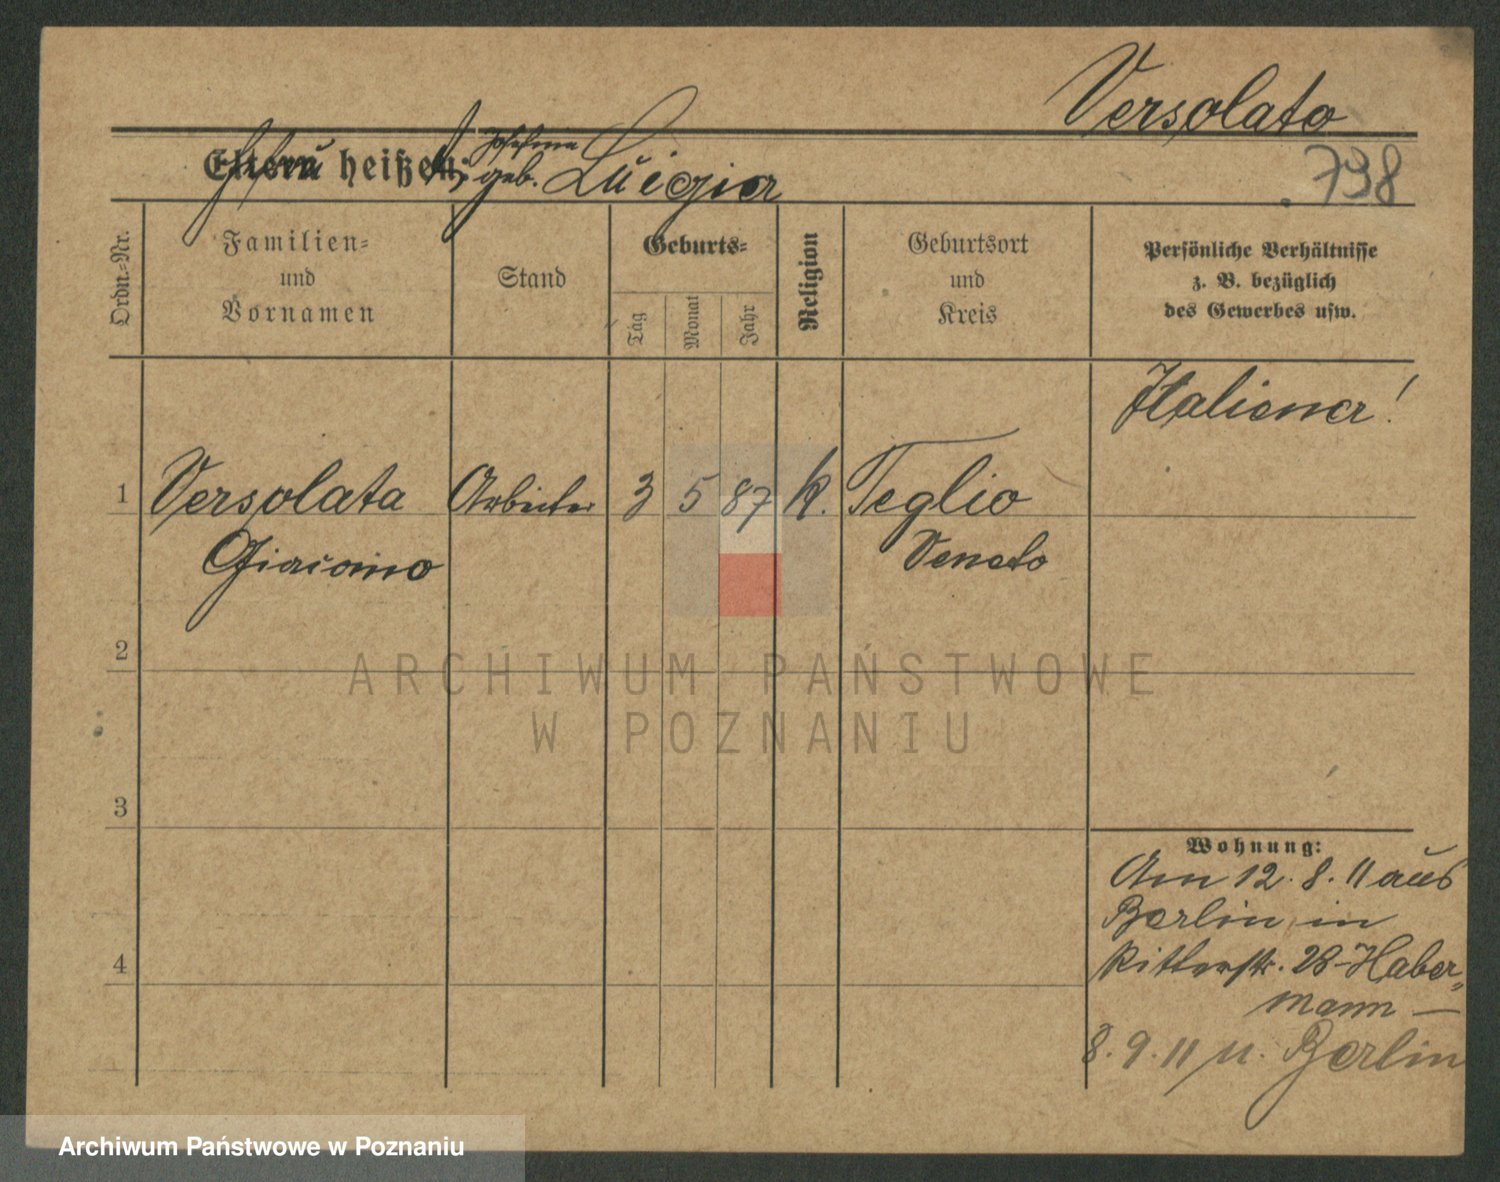 Versolato
Eltern heißen: Josefina
geb. Luigia
738
Ordn.-Nr.
Familien-
und
Vornamen
Stand
Geburts-
Tag
Monat
Jahr
Religion
Geburtsort
und
Kreis
Persönliche Verhältnisse
z. B. bezüglich
des Gewerbes usw.
Italiener!
1 Versolata Arbeiter 3 5 87 k. Teglio
Giacomo Veneto
2
ARCHIWUM PAŃSTWOWE
W POZNANIU
3
Wohnung:
Am 12. 8. 11 aus
Berlin in
4 Ritterstr. 28 Haber=
mann —
8. 9. 11 n. Berlin
Archiwum Państwowe w Poznaniu